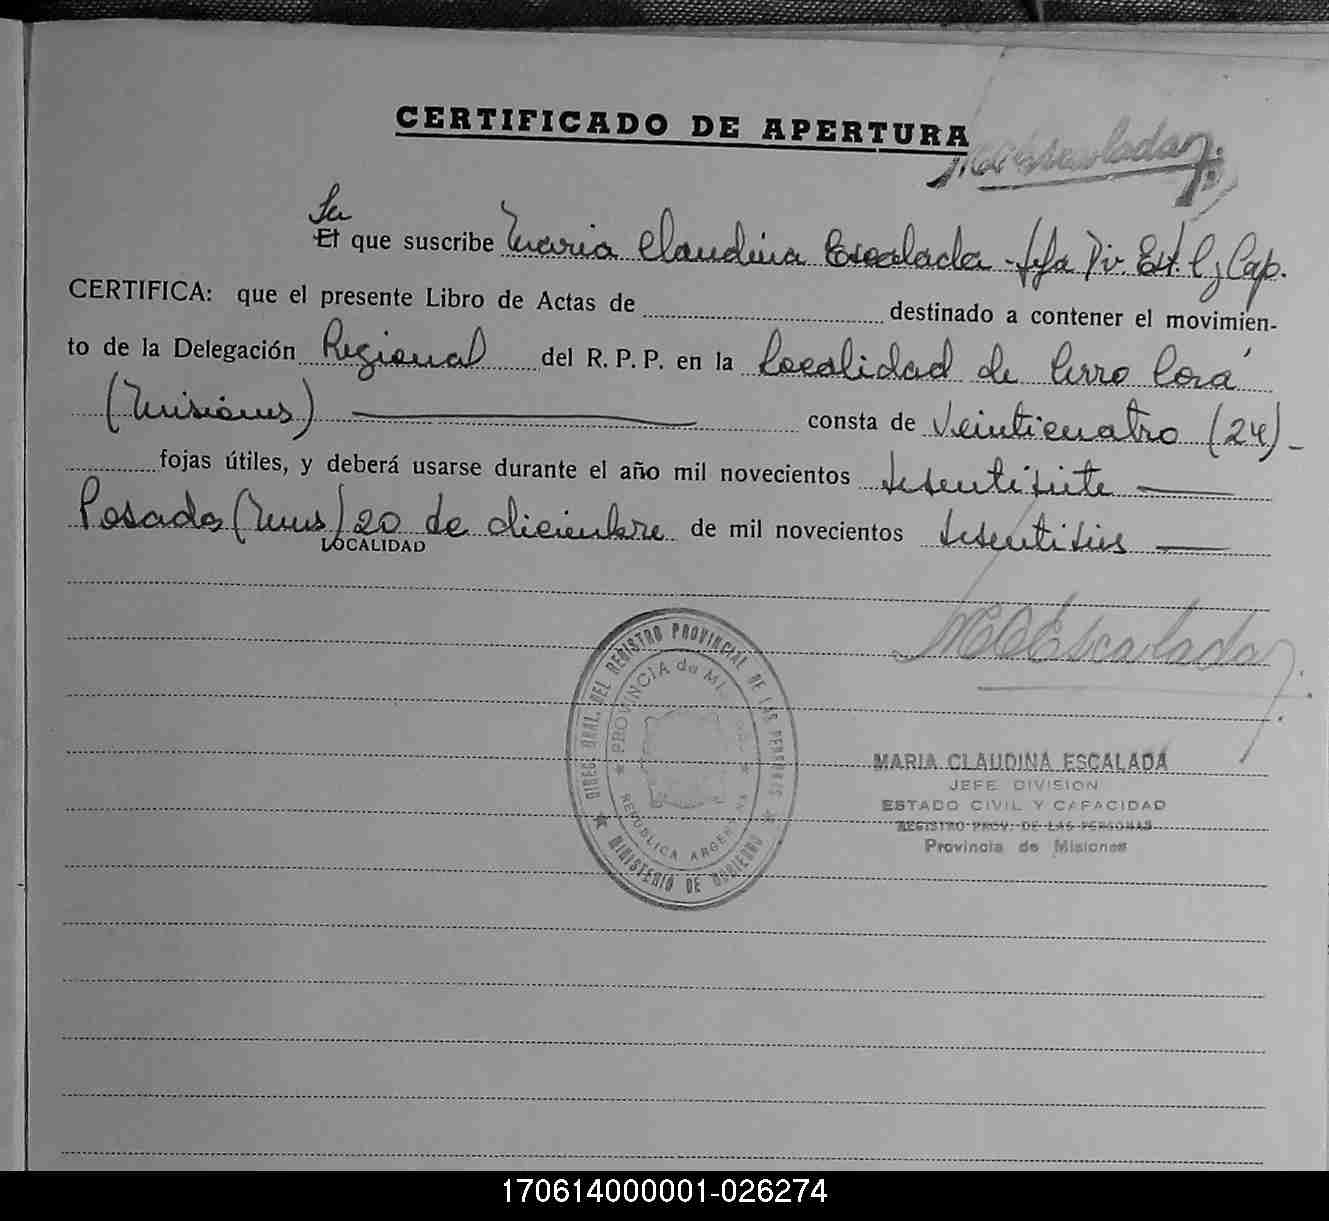 CERTIFICADO DE APERTURA
MCEscalada
La
El que suscribe Maria Claudina Escalada - Jefa Div. Est. C. y Cap.
CERTIFICA: que el presente Libro de Actas de destinado a contener el movimien-
to de la Delegación Regional del R. P. P. en la localidad de Cerro Corá
(Misiones) consta de Veinticuatro (24) -
fojas útiles, y deberá usarse durante el año mil novecientos sesentisiete
Posadas (Mnes) 20 de diciembre de mil novecientos sesentiseis
LOCALIDAD
MCEscalada
DIREC. GRAL. DEL REGISTRO PROVINCIAL DE LAS PERSONAS
PROVINCIA de MI
REPUBLICA ARGENTINA
MINISTERIO DE GOBIERNO
MARIA CLAUDINA ESCALADA
JEFE DIVISION
ESTADO CIVIL Y CAPACIDAD
REGISTRO PROV. DE LAS PERSONAS
Provincia de Misiones
170614000001-026274